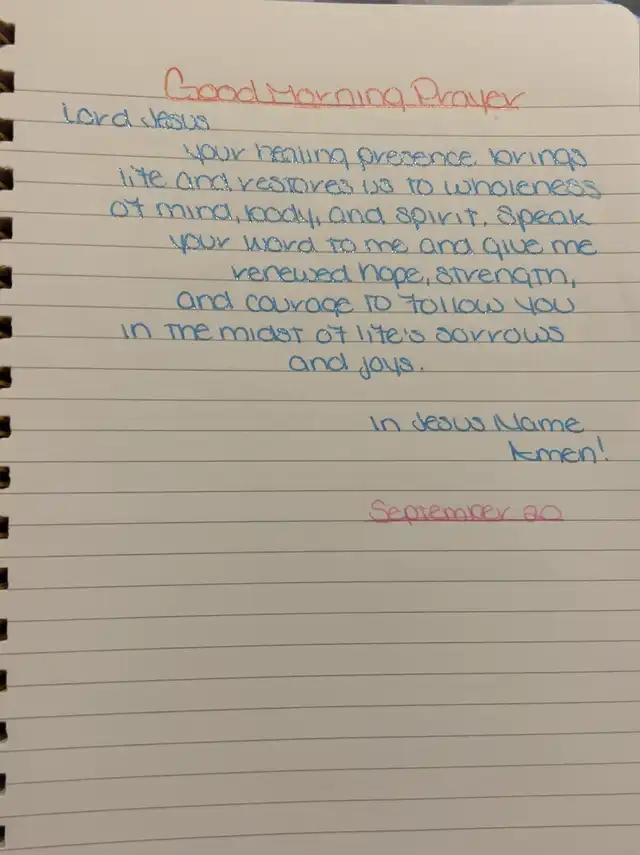 Good Morning Prayer
Lord Jesus
your healing presence brings
life and restores us to wholeness
of mind, body, and spirit. Speak
your word to me and give me
renewed hope, strength,
and courage to follow you
in the midst of life's sorrows
and joys.
in Jesus Name
Amen!
September 20